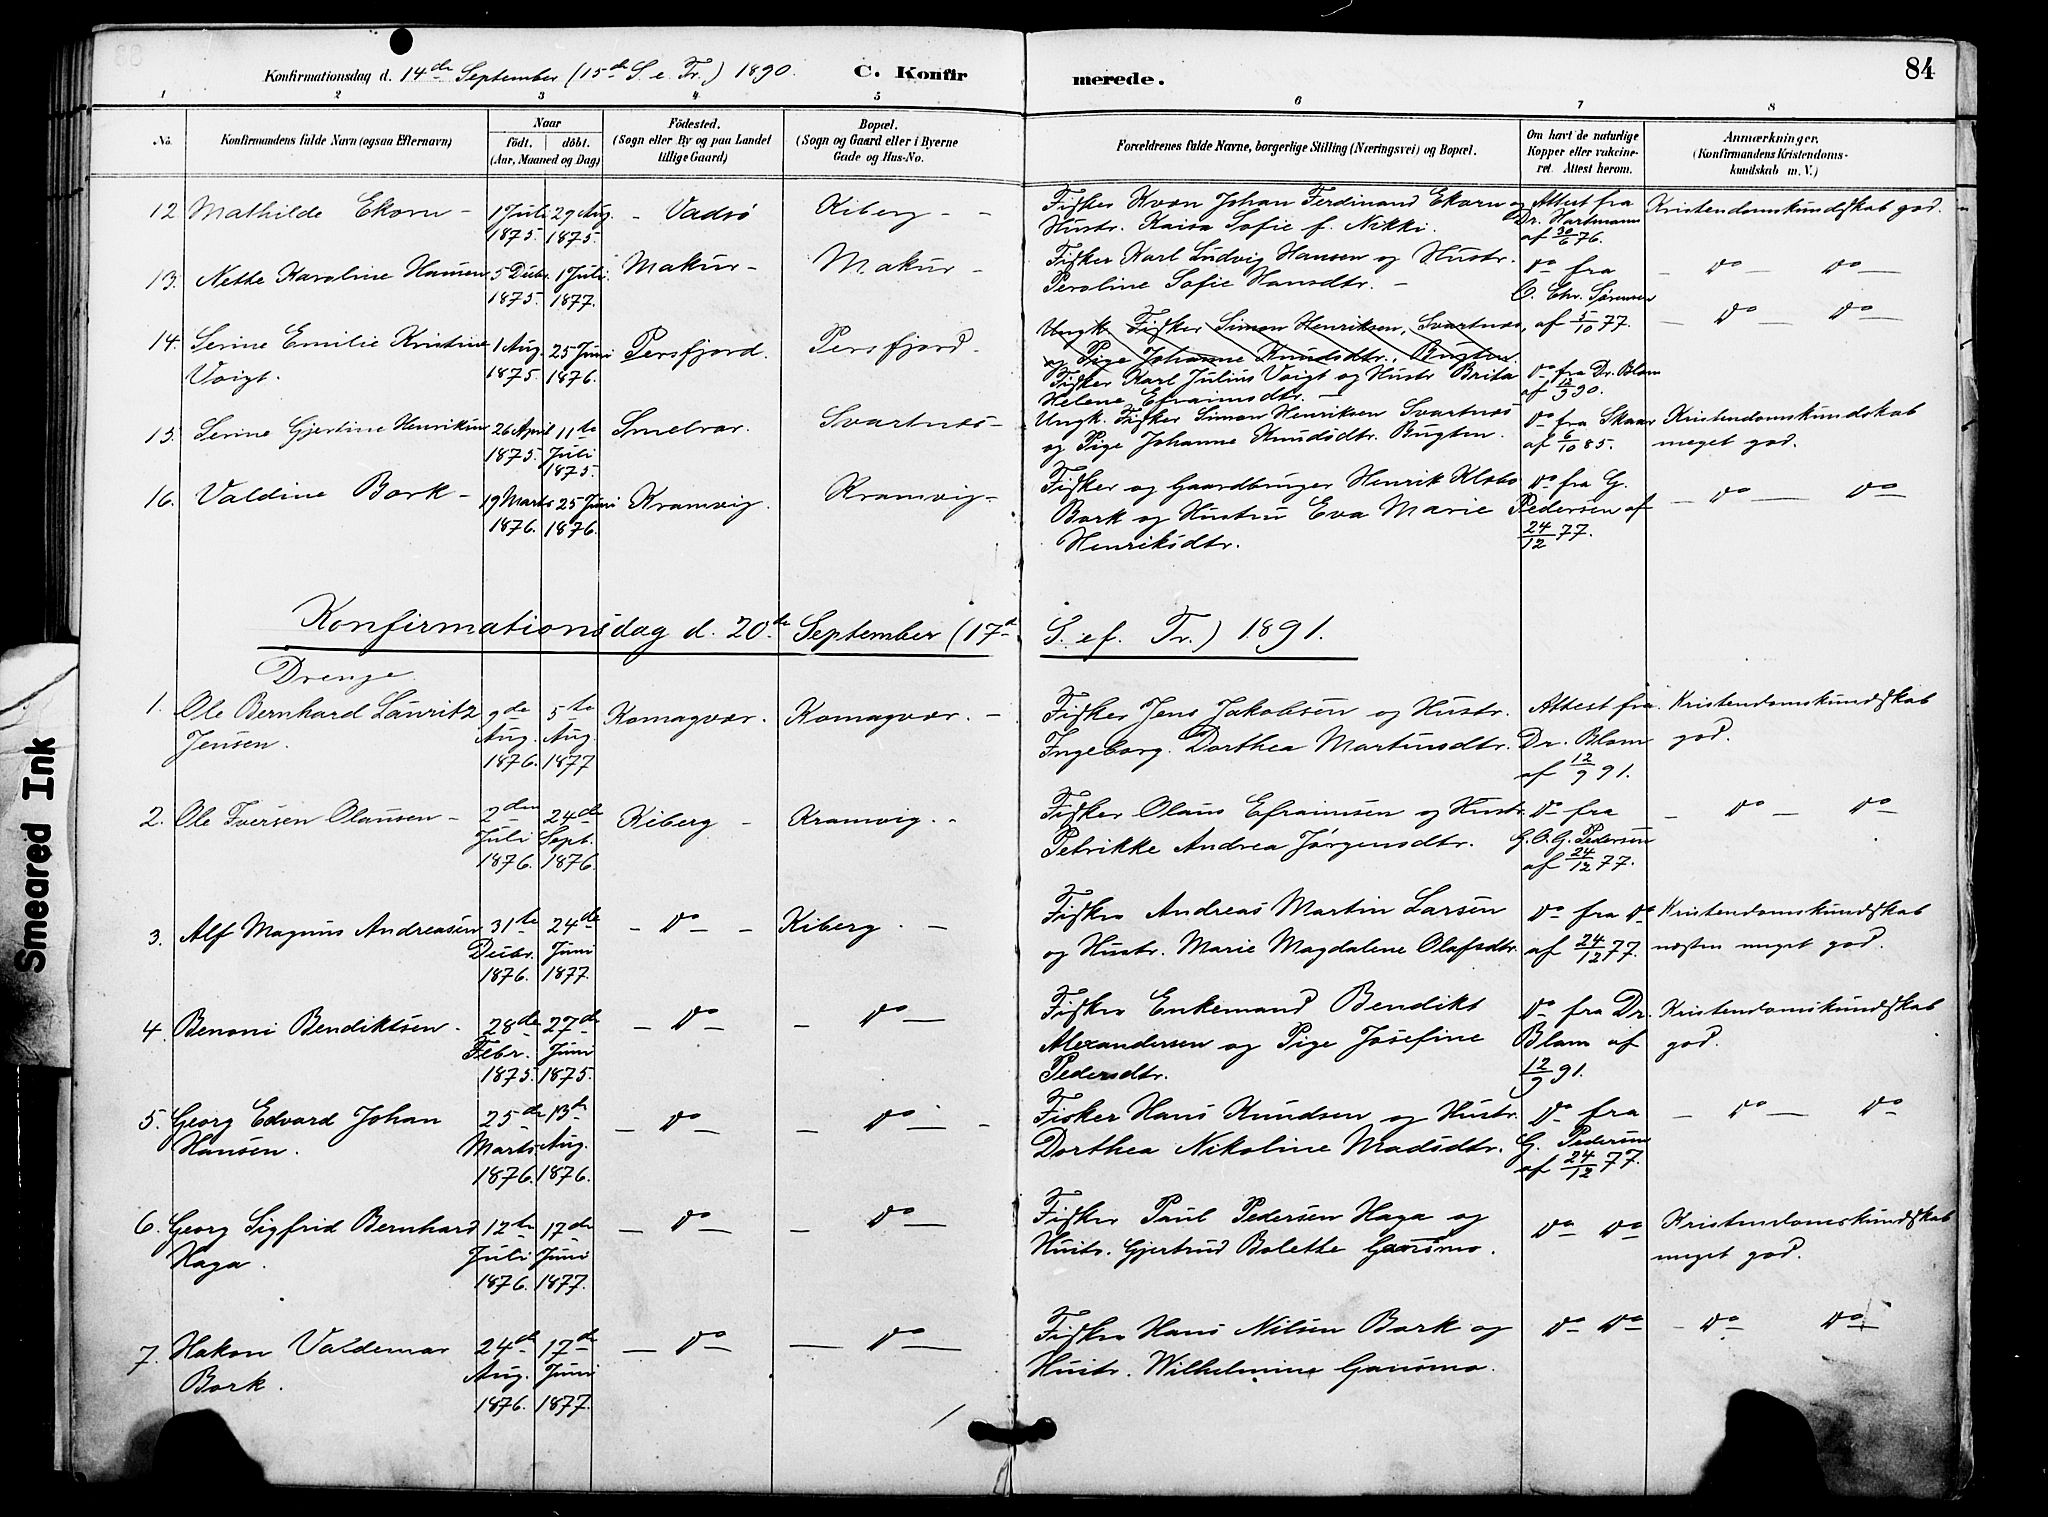 Konfirmationsdag d. 14de September (15de S. e. Tr.) 1890. C. Konfirmerede. 84
1 2 3 4 5 6 7 8
No. Konfirmandens fulde Navn (ogsaa Efternavn) Naar födt. döbt. (Aar, Maaned og Dag) Födested. (Sogn eller By og paa Landet tillige Gaard) Bopæl. (Sogn og Gaard eller i Byerne Gade og Hus-No. Forældrenes fulde Navne, borgerlige Stilling (Næringsvei) og Bopæl. Om havt de naturlige Kopper eller vakcineret. Attest herom. Anmærkninger. (Konfirmandens Kristendomskundskab m. V.)
12 Mathilde Ekorn - 1 Juli 1875. 29 Aug. 1875. - Vadsö Kiberg - -
Fisker Kvæn Johan Ferdinand Ekorn og Hustr. Kaisa Sofie f. Nikki. Attest fra Dr. Hartmann af 30/6 76. Kristendomskundskab god.
13. Nette Karoline Hansen 5 Decbr. 1875. 1 Juli 1877. Makur - Makur -
Fisker Karl Ludvig Hansen og Hustr. Peroline Sofie Hansdtr. - Do fra C. Chr. Sørensen af 5/10 77. - Do - Do -
14. Serine Emilie Kristine Voigt. 1 Aug. 1875. 25 Juni 1876. Persfjord. Persfjord.
Ungk. Fisker Simon Henriksen, Svartnæs, og Pige Johanne Knudsdtr., Bugten.
Fisker Karl Julius Voigt og Hustr Brita Helene Efraimsdtr. - Do fra Dr. Blom af 12/9 90. - Do - Do -
15. Serine Gjertine Henriksen 26 April 1875. 11te Juli 1875. Smelvær. Svartnæs -
Ungk. Fisker Simon Henriksen Svartnæs og Pige Johanne Knudsdtr. Bugten. Do fra Skaar af 6/10 85. Kristendomskundskab meget god.
16. Valdine Bork - 19 Marts 1876. 25 Juni 1876. Kramvig. Kramvig -
Fisker og Gaardbruger Henrik Klebo Bork og Hustru Eva Marie Henriksdtr. Do fra G. Pedersen af 24/12 77. - Do - Do
Konfirmationsdag d. 20de September (17de S. ef. Tr.) 1891.
Drenge.
1. Ole Bernhard Lauritz Jensen. 9de Aug. 1876. 5te Aug. 1877 Komagvær. Komagvær. -
Fisker Jens Jakobsen og Hustr. Ingeborg Dorthea Martinsdtr. Attest fra Dr. Blom af 12/9 91. Kristendomskundskab god.
2. Ole Iversen Olausen - 2den Juli 1876. 24de Sept. 1876. Kiberg - Kramvig. -
Fisker Olaus Efraimsen og Hustr. Petrikke Andrea Jørgensdtr. Do fra G. O. G. Pedersen af 24/12 77. - Do - Do
3. Alf Magnus Andreasen 31te Decbr. 1876. 24de Juni 1877. - Do - Kiberg. -
Fisker Andreas Martin Larsen og Hustr. Marie Magdalene Olafsdtr. Do fra Do af 24/12 77. Kristendomskundskab næsten meget god.
4. Benoni Bendiktsen - 28de Febr. 1875. 27de Juni 1875. - Do - - Do -
Fisker Enkemand Bendikt Alexandersen og Pige Josefine Pedersdtr. Do fra Dr. Blom af 12/9 91. Kristendomskundskab god.
5. Georg Edvard Johan Hansen. 25de Marts 1876. 13de Aug. 1876. - Do - - Do - -
Fisker Hans Knudsen og Hustr. Dorthea Nikoline Madsdtr. Do fra G. Pedersen af 24/12 77. - Do - Do
6. Georg Sigfrid Bernhard Haga. 12te Juli 1876. 17de Juni 1877. - Do - - Do -
Fisker Paul Pedersen Haga og Hustr. Gjertrud Bolette Gausmo. Do Do Kristendomskundskab meget god.
7. Hakon Valdemar Bork. 24de Aug. 1876. 17de Juni 1877. - Do - - Do -
Fisker Hans Nilsen Bork og Hustr. Wilhelmine Gausmo. Do Do - Do - Do -
Smeared Ink